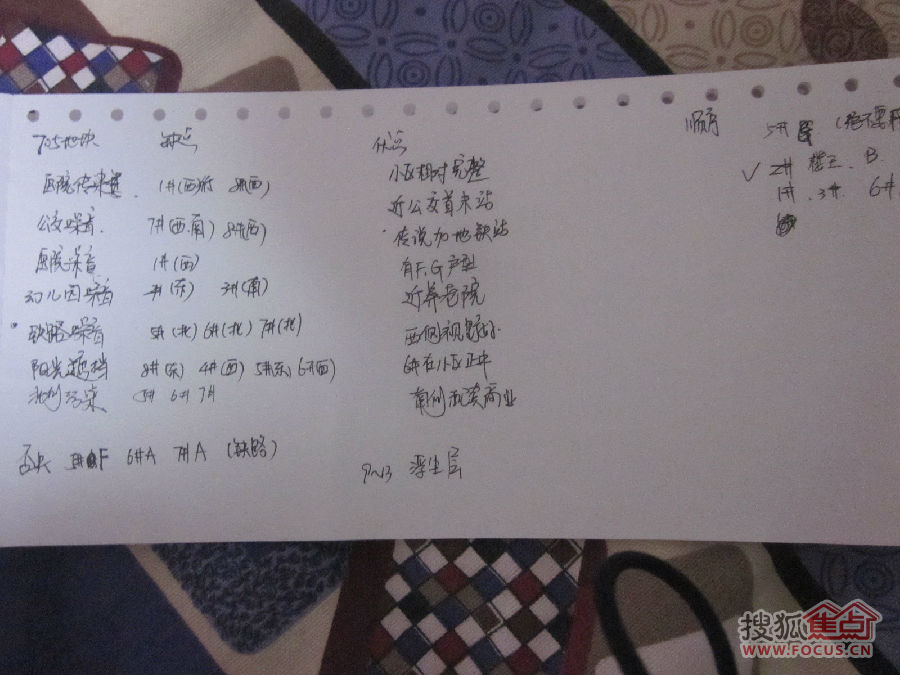 705地块 缺点
医院传染 1#(西) 8#(西)
公交噪音 7#(西.南) 8#(西)
医院噪音 1#(西)
幼儿园噪音 (东) 3#(南)
铁路噪音 5#(北) 6#(北) 7#(北)
阳光遮挡 8#(东) 4#(西) 5#(东) 6#(西)
污染 6# 7#
F 6#A 7#A (铁路)
优点
小区相对完整
近公交首末站
传说加地铁站
有F.G户型
近养老院
西侧视野好
6#在小区正中
南侧商业
9~13 浮尘层
顺序 5#
✓ 2# 楼王. B.
1#. 3#. 6#
搜狐焦点
WWW.FOCUS.CN